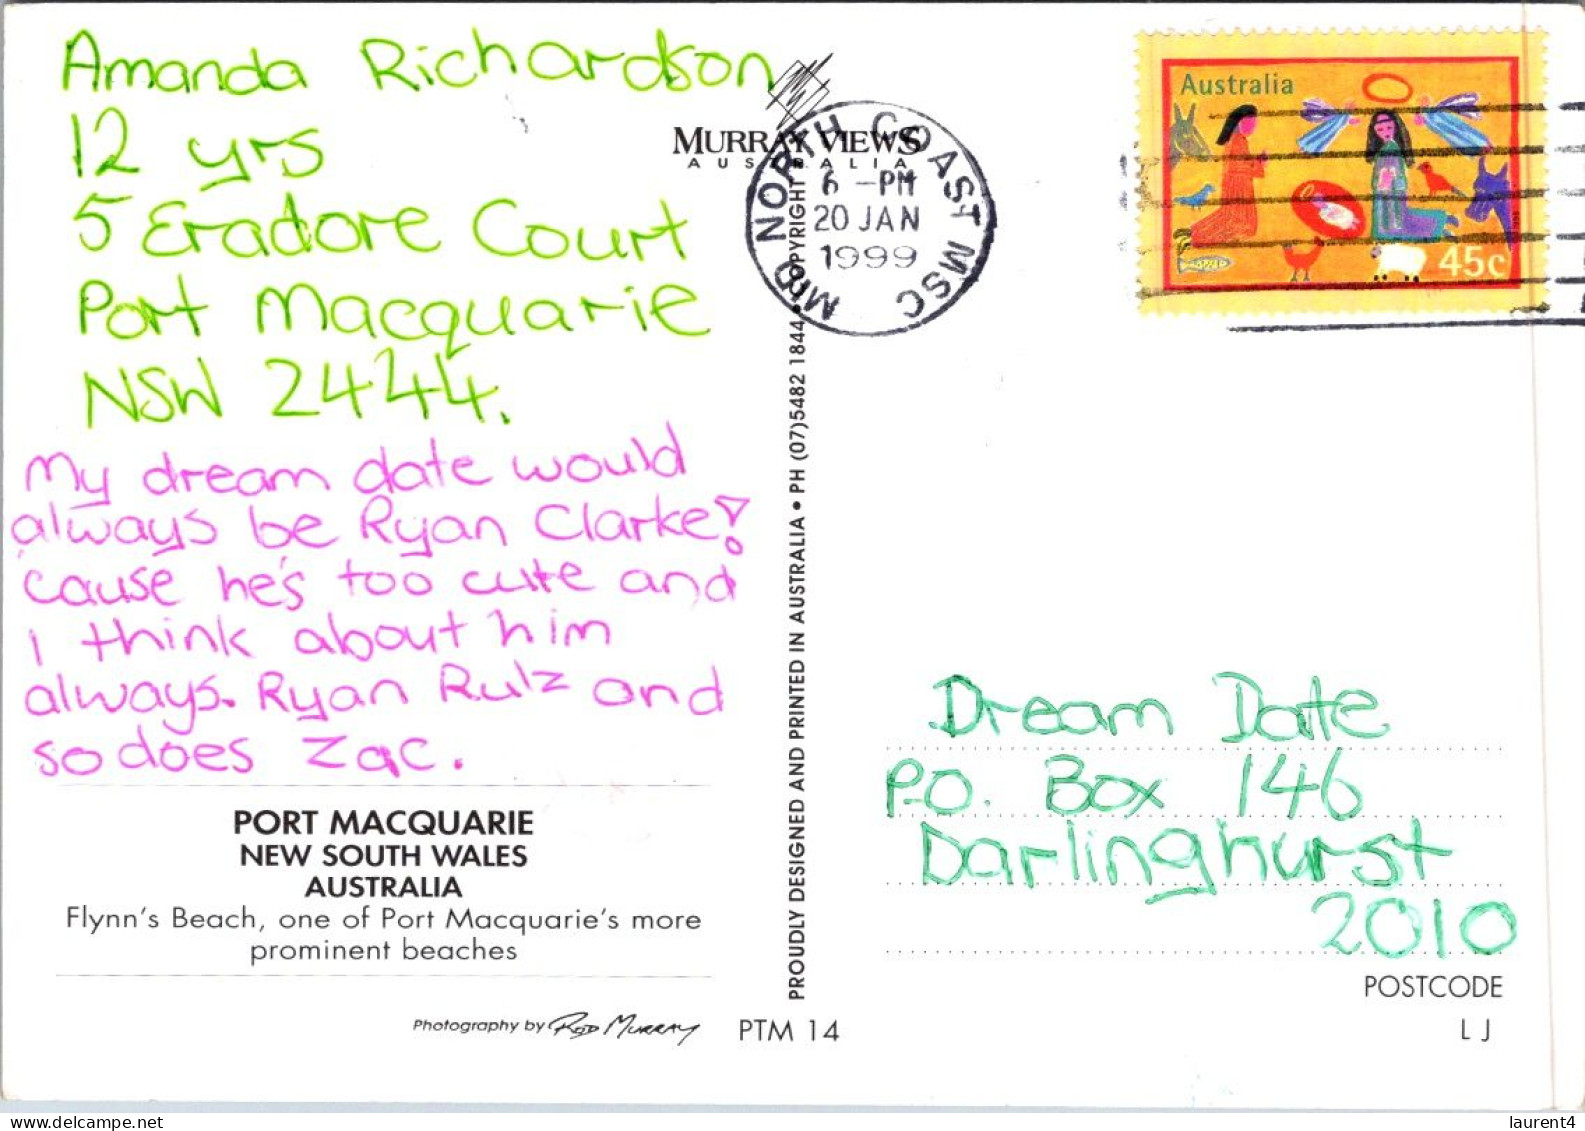 Amanda Richardson
12 yrs
5 Eradore Court
Port Macquarie
NSW 2444.
My dream date would
always be Ryan Clarke!
'cause he's too cute and
I think about him
always. Ryan Rulz and
so does Zac.
PORT MACQUARIE
NEW SOUTH WALES
AUSTRALIA
Flynn's Beach, one of Port Macquarie's more
prominent beaches
Photography by Rod Murray
PTM 14
MURRAY VIEWS
AUSTRALIA
PROUDLY DESIGNED AND PRINTED IN AUSTRALIA • PH (07)5482 1844 • COPYRIGHT
MID NORTH COAST MSC
6 -PM
20 JAN
1999
Australia
45c
Dream Date
P.O. Box 146
Darlinghurst
2010
POSTCODE
L J
laurent4